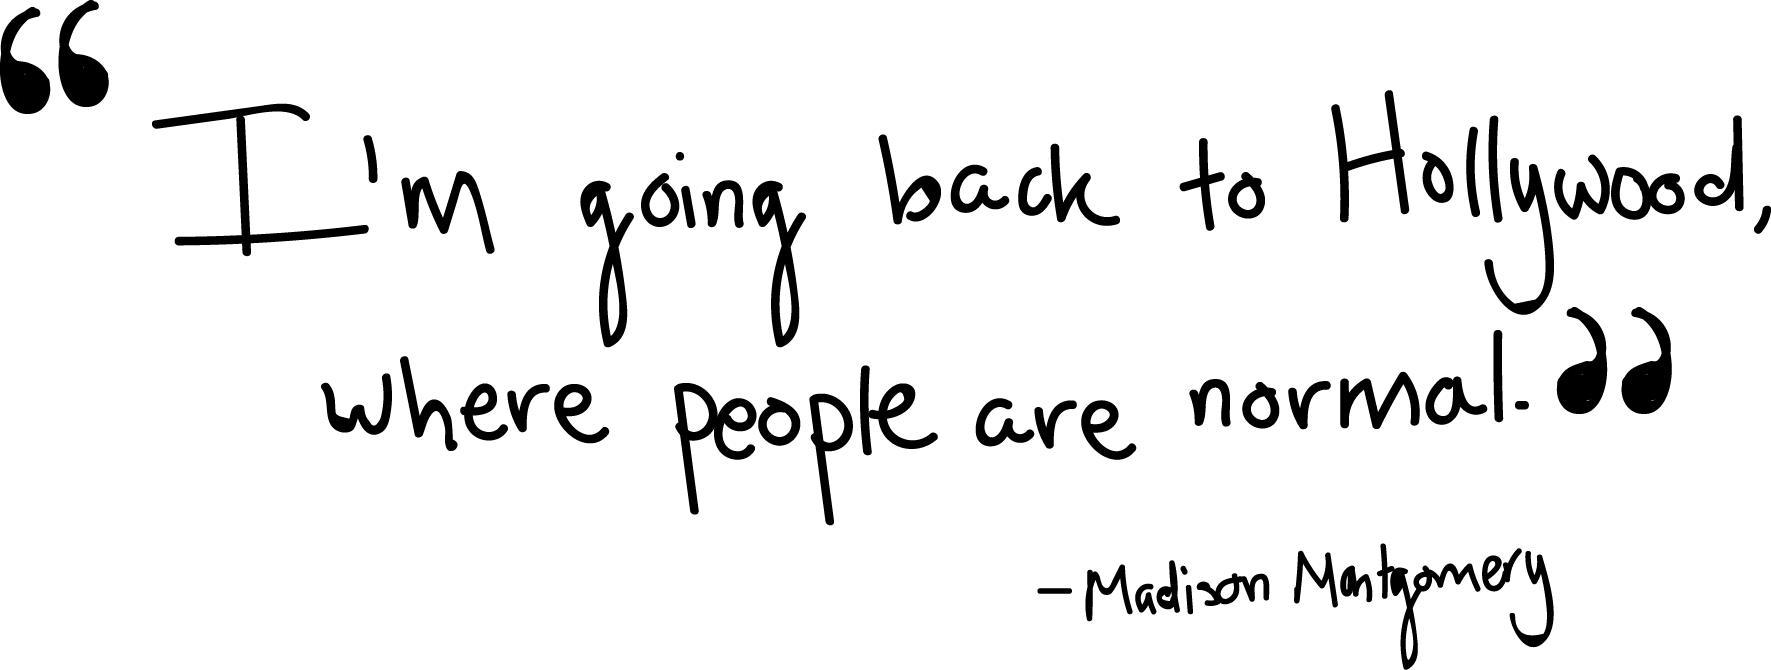 “I'm going back to Hollywood,
where people are normal.”
-Madison Montgomery